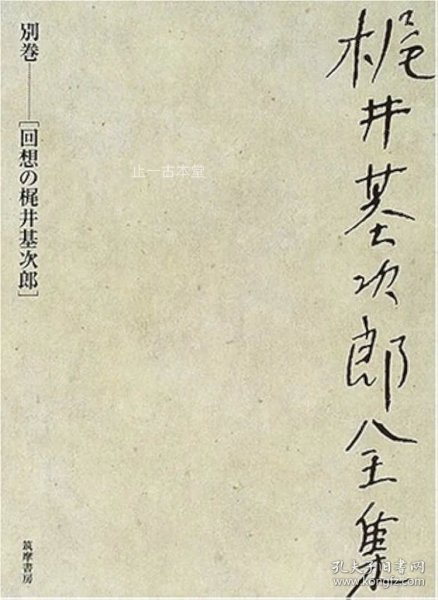 梶井基次郎全集
別巻――[回想の梶井基次郎]
止一古本堂
筑摩書房
孔夫子旧书网
www.kongfz.com